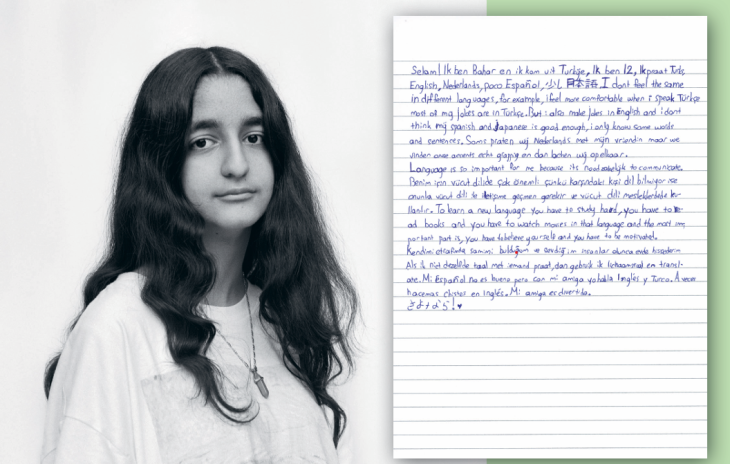 Selam! Ik ben Bahar en ik kom uit Turkije, Ik ben 12, Ik praat Turks,
English, Nederlands, poco Español, 少し 日本語 I dont feel the same
in different languages, for example, i feel more comfortable when i speak Türkçe
most of my jokes are in Türkçe. But i also make jokes in English and i dont
think my spanish and Japanese is good enough, i only know some words
and sentences. Soms praten wij Nederlands met mijn vriendin maar we
vinden onze accents echt grappig en dan lachen wij
Language is so important for me because its to communicate.
Benim için vücut dilide çok önemli çünkü karşındaki kişi dil bilmiyor ise
onunla vücut dili ile iletişime geçmen gerekir ve vücut dili mesleklerdede ku-
llanılır. To learn a new language you have to study hard, you have to re-
ad books and you have to watch movies in that language and the most im-
portant part is, you have to believe yourself and you have to be motivated.
Kendimi etrafımda samimi ve sevdiğim insanlar olunca evde hissederim
Als ik niet dezelfde taal met iemand praat, dan gebruik ik lichaamstaal en transl-
ate. Mi Español no es bueno pero con mi amiga yo habla Inglés y Turco. A veces
hacemos chistes en Inglés. Mi amiga es divertida.
さよなら!♥